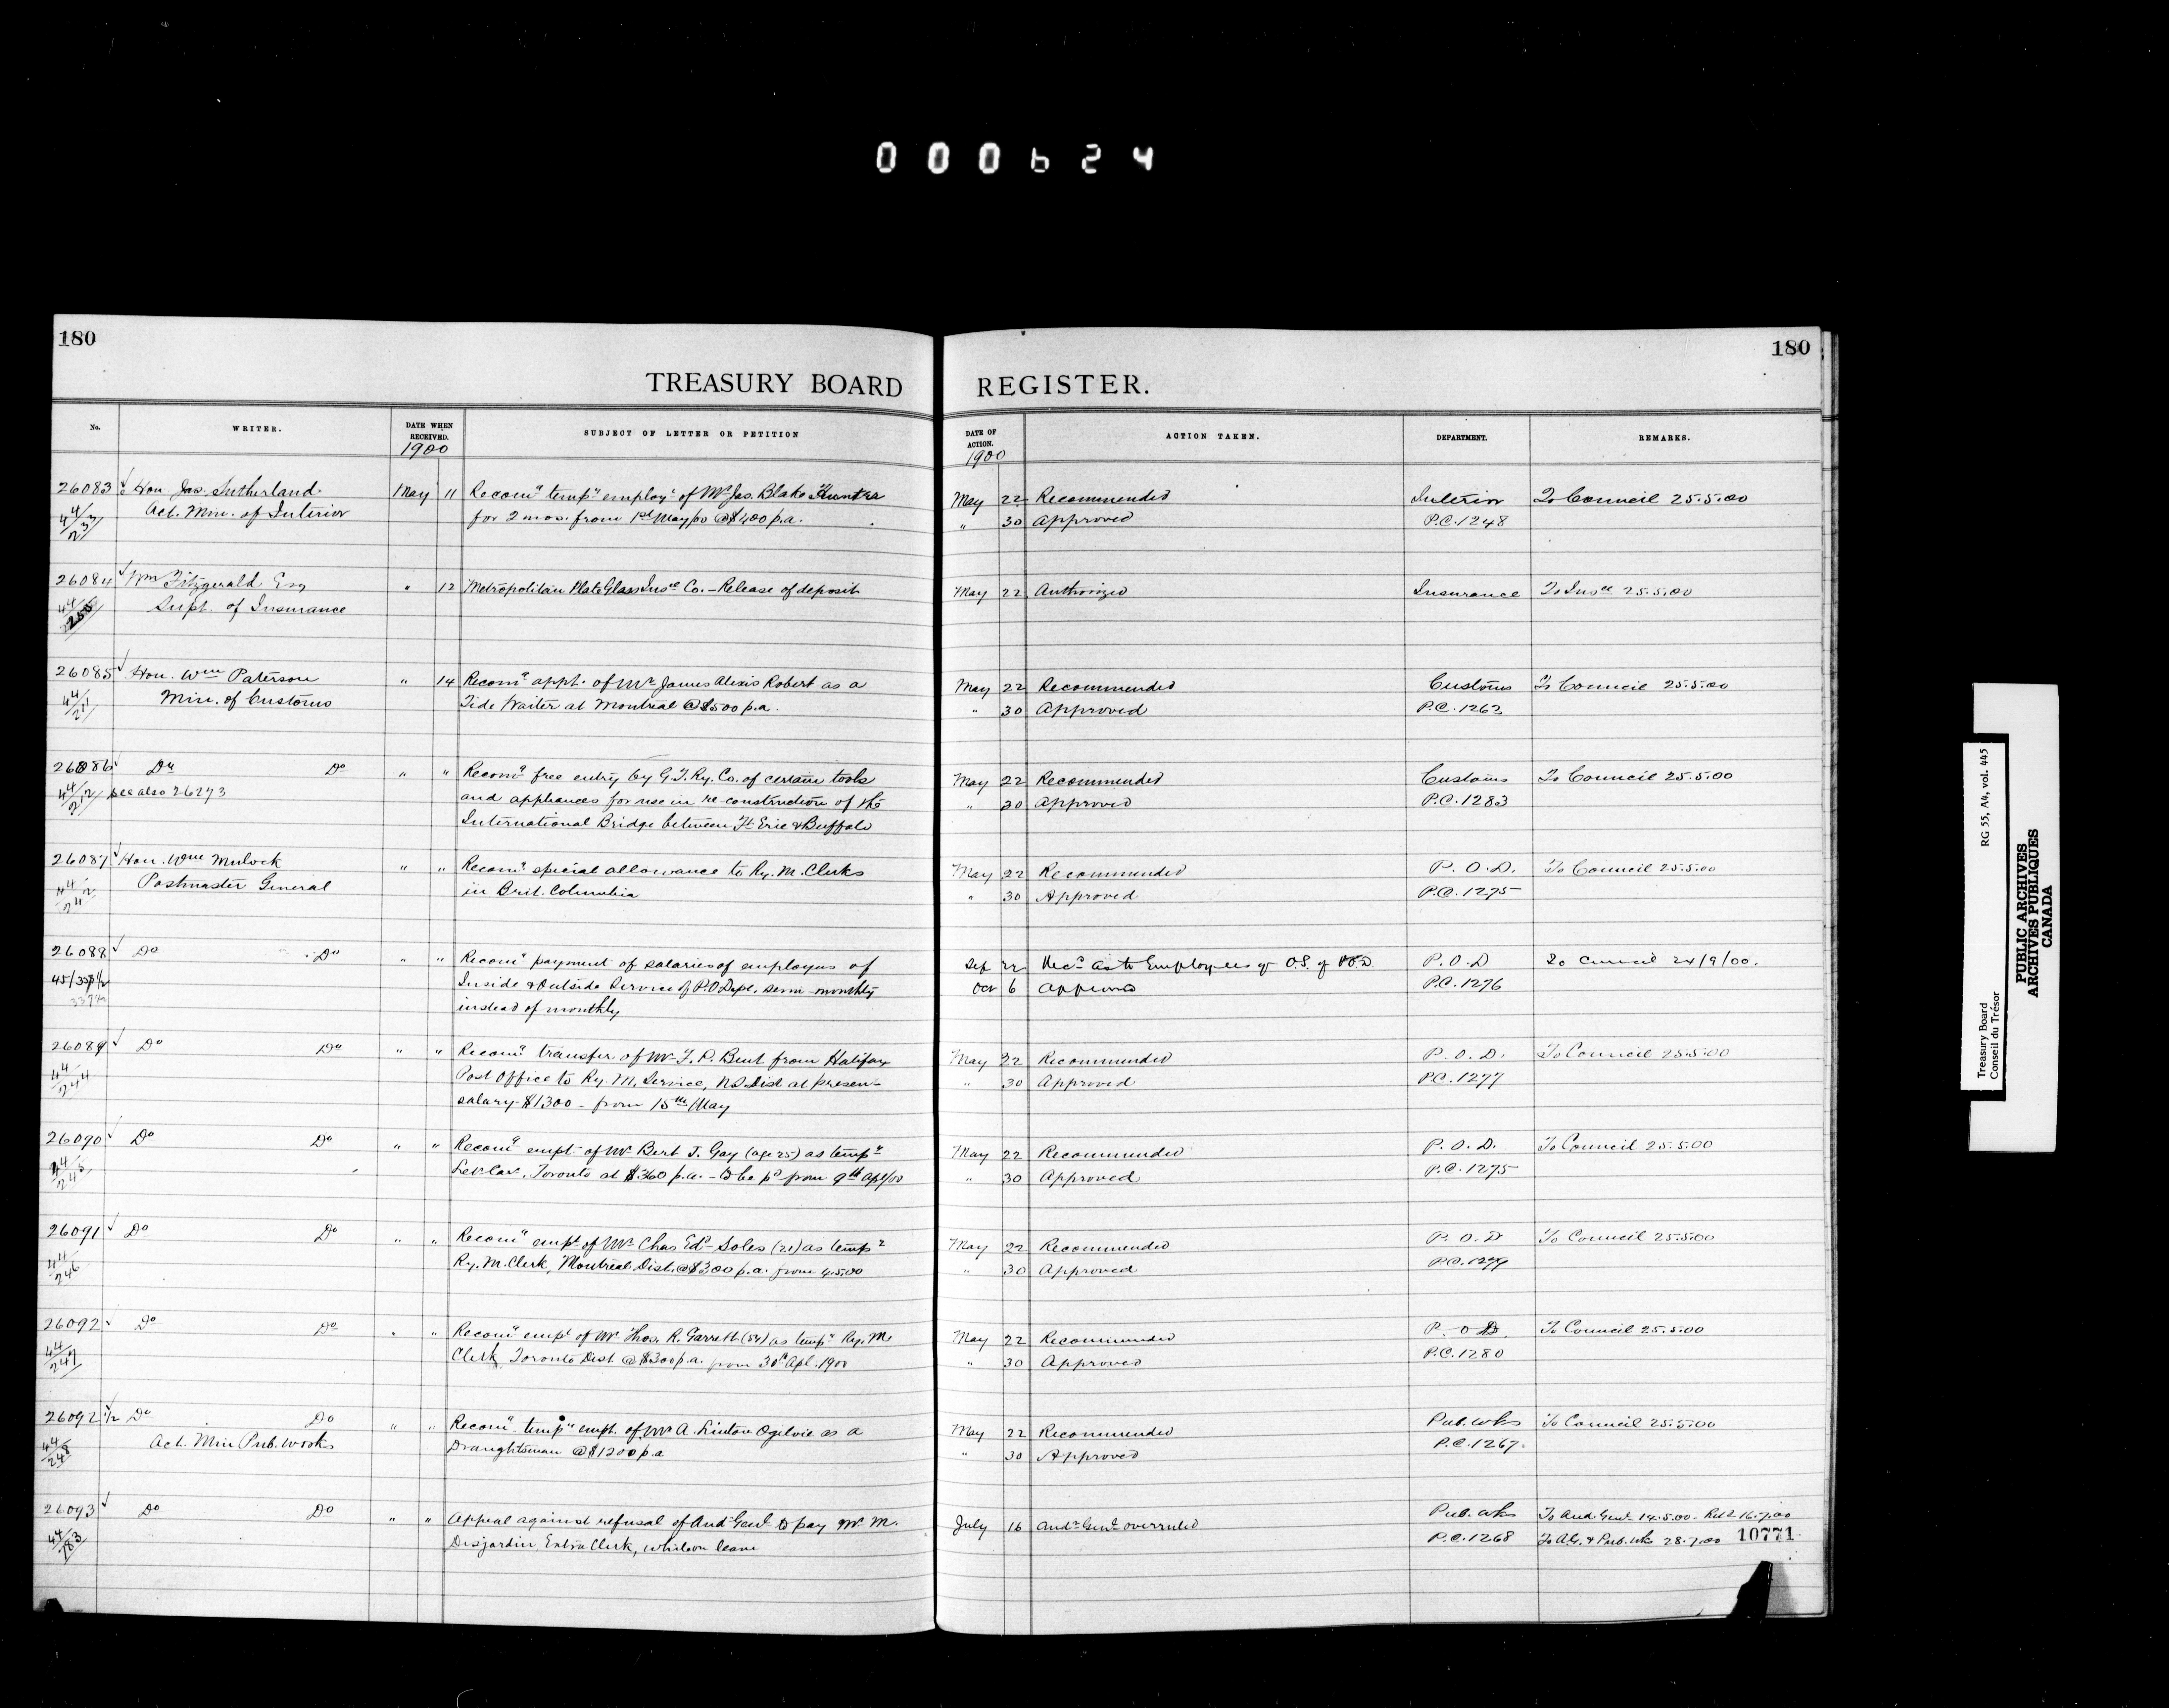 000624
180
180
TREASURY BOARD REGISTER.
No. WRITER. DATE WHEN RECEIVED. SUBJECT OF LETTER OR PETITION DATE OF ACTION. ACTION TAKEN. DEPARTMENT. REMARKS.
1900 1900
26083 Hon. Jas. Sutherland May 11 Recomg tempy employt of Mr Jas. Blake Hunter May 22 Recommended Interior To Council 25.5.00
44/233 Act. Min. of Interior for 2 mos. from 1st May/00 @ $400 p.a. " 30 Approved P.C. 1248
26084 Wm Fitzgerald Esq " 12 Metropolitan Plate Glass Insce Co. – Release of deposit May 22 Authorized Insurance To Insce 25.5.00
44/250 Supt. of Insurance
26085 Hon. Wm Paterson " 14 Recomg appt. of Mr James Alexis Robert as a May 22 Recommended Customs To Council 25.5.00
44/211 Min. of Customs Tide Waiter at Montreal @ $500 p.a. " 30 Approved P.C. 1262
26086 Do Do " " Recomg free entry by G.T. Ry. Co. of certain tools May 22 Recommended Customs To Council 25.5.00
44/212 see also 26273 and appliances for use in re-construction of the " 30 Approved P.C. 1283
International Bridge between Ft Erie & Buffalo
26087 Hon. Wm Mulock " " Recomg special allowance to Ry. M. Clerks May 22 Recommended P.O.D. To Council 25.5.00
44/242 Postmaster General in Brit. Columbia " 30 Approved P.C. 1275
26088 Do Do " " Recomg payment of salaries of employees of Sep 22 Recd as to Employees of O.S. of P.O.D. P.O.D To Council 24/9/00.
Inside & Outside Service of P.O Dept. semi-monthly Oct 6 Approved P.C. 1276
instead of monthly
26089 Do Do " " Recomg transfer of Mr T. P. Bent from Halifax May 22 Recommended P.O.D. To Council 25.5.00
44/244 Post Office to Ry. M. Service, NS Dist at present " 30 Approved P.C. 1277
salary $1300 – from 15th May
26090 Do Do " " Recomg empt. of Mr Bert J. Gay (age 25) as tempy May 22 Recommended P.O.D. To Council 25.5.00
44/245 Let Car. Toronto at $360 p.a. – to be pd from 9th Apl/00 " 30 Approved P.C. 1275
26091 Do Do " " Recomg empt of Mr Chas Edd Soles (21) as tempy May 22 Recommended P.O.D To Council 25.5.00
44/246 Ry. M. Clerk, Montreal Dist. @ $300 p.a. from 4.5.00 " 30 Approved P.C. 1279
26092 Do Do " " Recomg empt of Mr Thos. R. Garrett (34) as tempy Ry. M. May 22 Recommended P.O.D. To Council 25.5.00
44/247 Clerk Toronto Dist @ $300 p.a. from 30th Apl. 1900 " 30 Approved P.C. 1280
26092 1/2 Do Do " " Recomg tempy empt. of Mr A. Linton Ogilvie as a May 22 Recommended Pub. Wks To Council 25.5.00
44/248 Act. Min Pub. Works Draughtsman @ $1200 p.a " 30 Approved P.C. 1267
26093 Do Do " " Appeal against refusal of Aud Genl to pay Mr M. July 16 Audr Genl overruled Pub. Wks To Aud. Genl 14.5.00 – Retd 16.7.00
44/783 Desjardin Extra Clerk, while on leave P.C. 1268 To A.G. & Pub. Wks 28.7.00
10771
Treasury Board RG 55, A4, vol. 445
Conseil du Trésor
PUBLIC ARCHIVES
ARCHIVES PUBLIQUES
CANADA